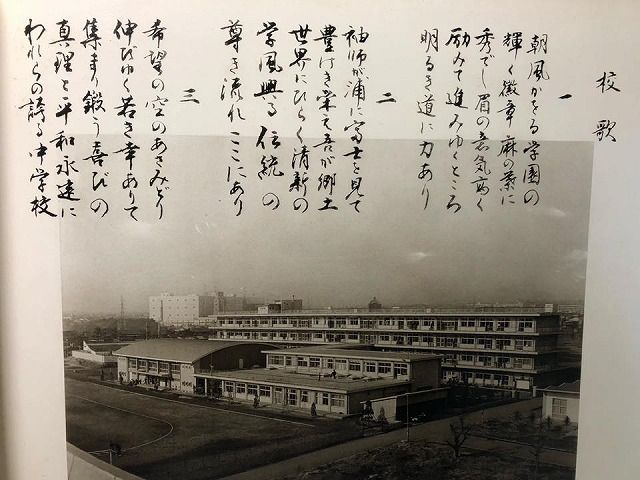 校歌
一
朝風かをる学園の
輝く徽章麻の葉に
秀でし眉の意気高く
励みて進みゆくところ
明るき道に力あり
二
袖師が浦に富士を見て
豊けき栄え吾が郷土
世界にひらく清新の
学風興る伝統の
尊き流れここにあり
三
希望の空のあさみどり
伸びゆく若き幸ありて
集まり鍛う喜びの
真理と平和永遠に
われらの誇る中学校